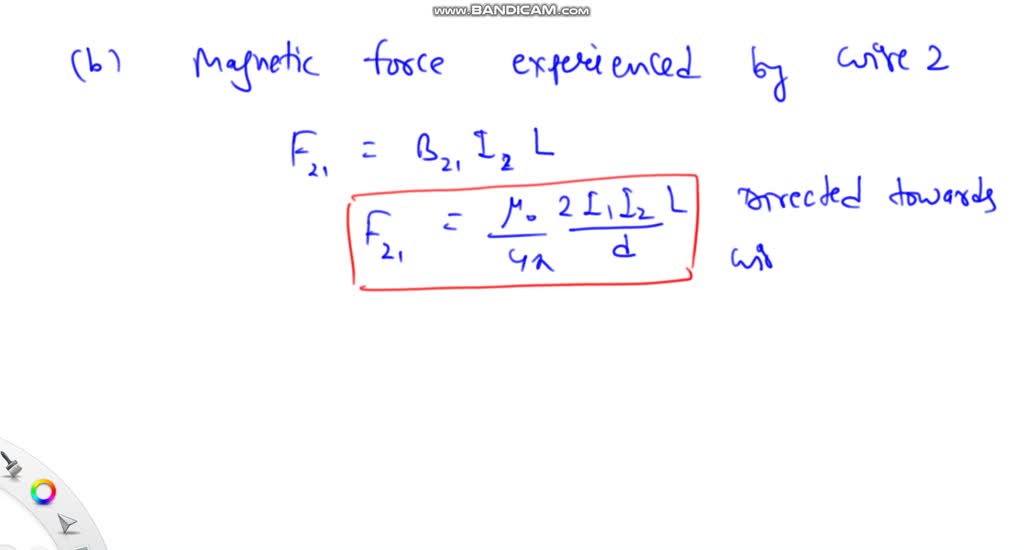 www.BANDICAM.com
(b) Magnetic force experienced by wire 2
F₂₁ = B₂₁ I₂ L
F₂₁ = μ₀/4π 2I₁I₂L/d directed towards
wi